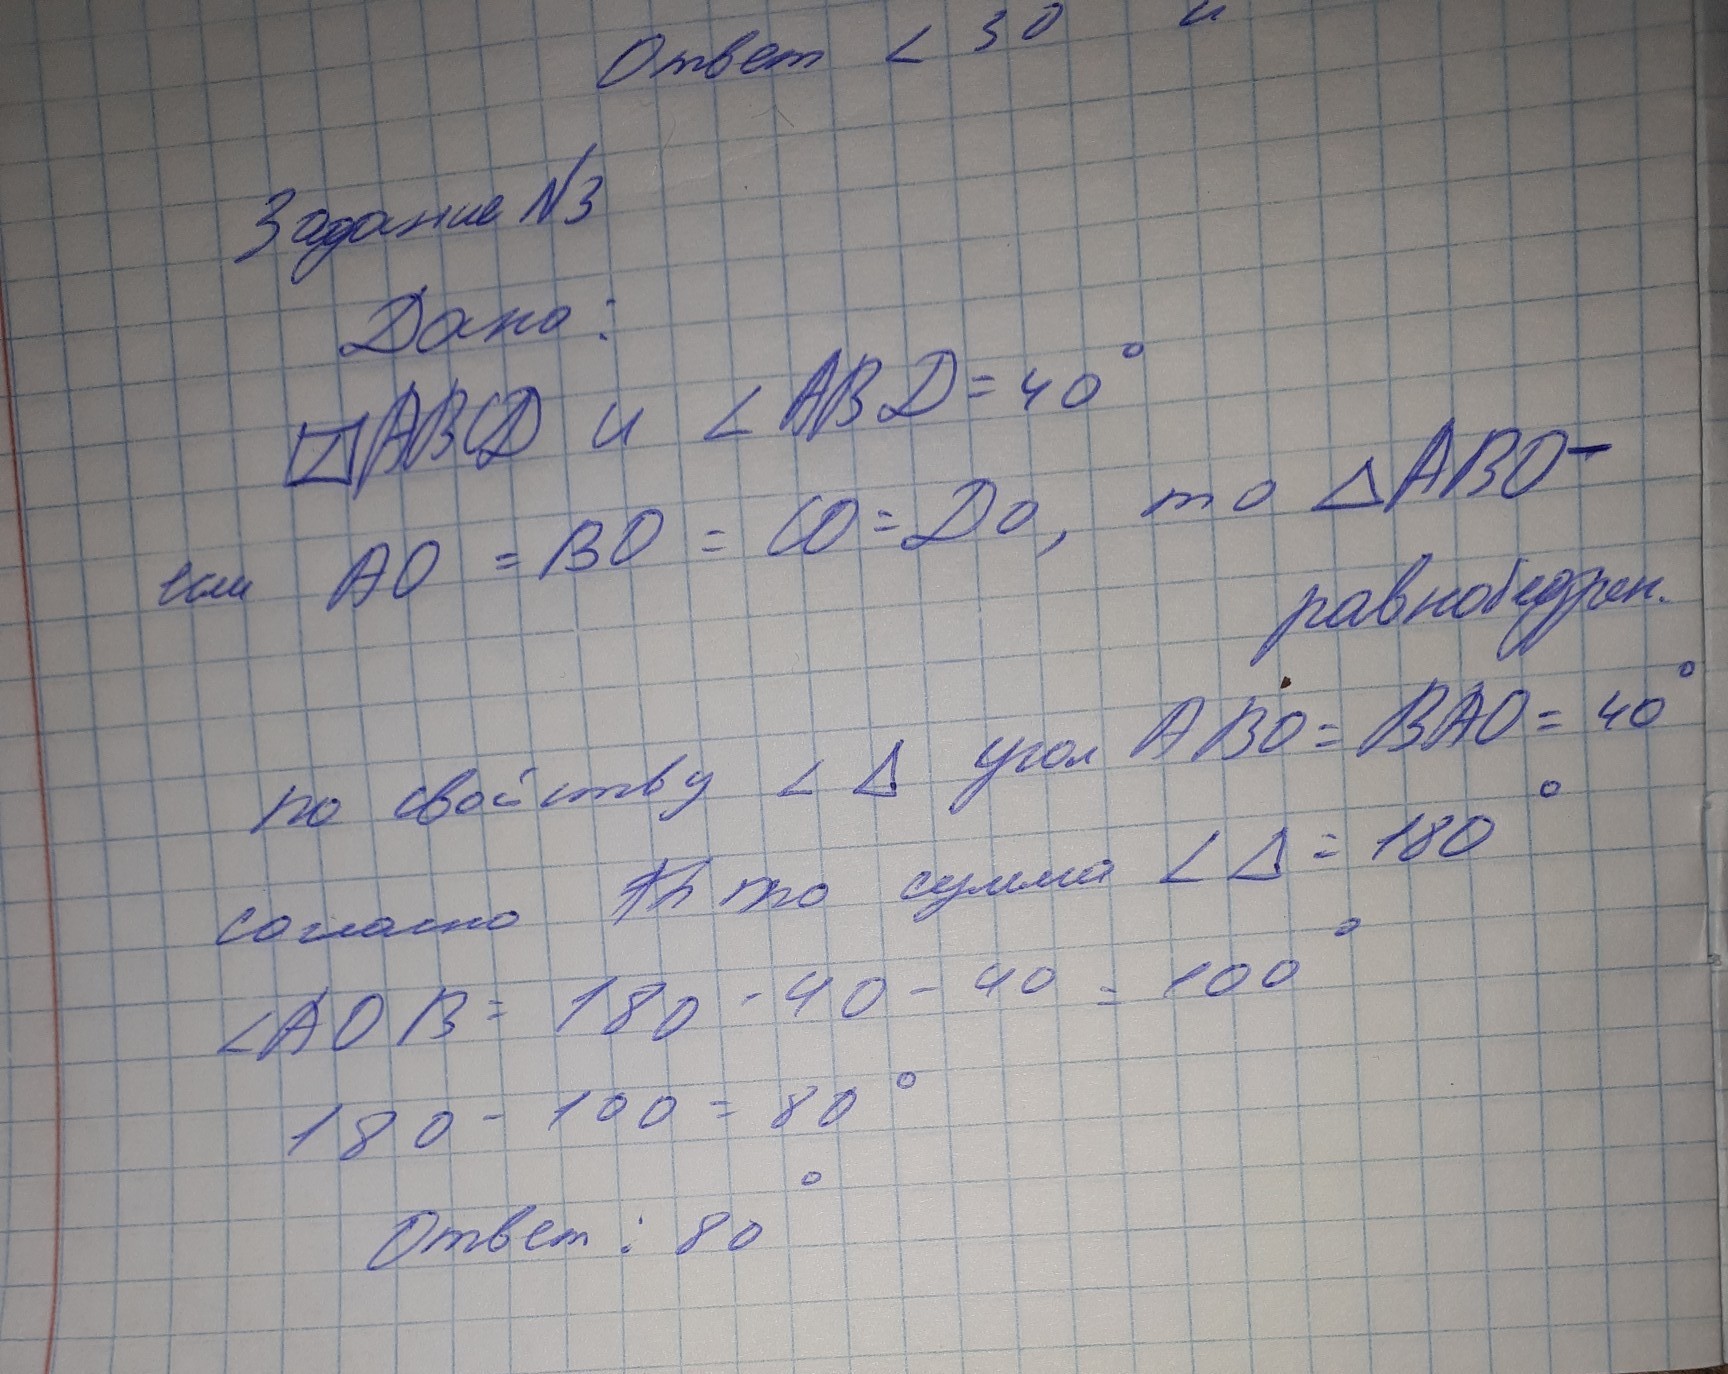 Ответ ∠ 30 и
Задание N3
Дано:
□ABCD и ∠ABD = 40°
если AO = BO = CO = DO, то △ABO-
равнобедрен.
по свойству ∠ △ угол ABO = BAO = 40°
согласно Th то сумма ∠ △ = 180°
∠AOB = 180 - 40 - 40 = 100°
180 - 100 = 80°
Ответ: 80°